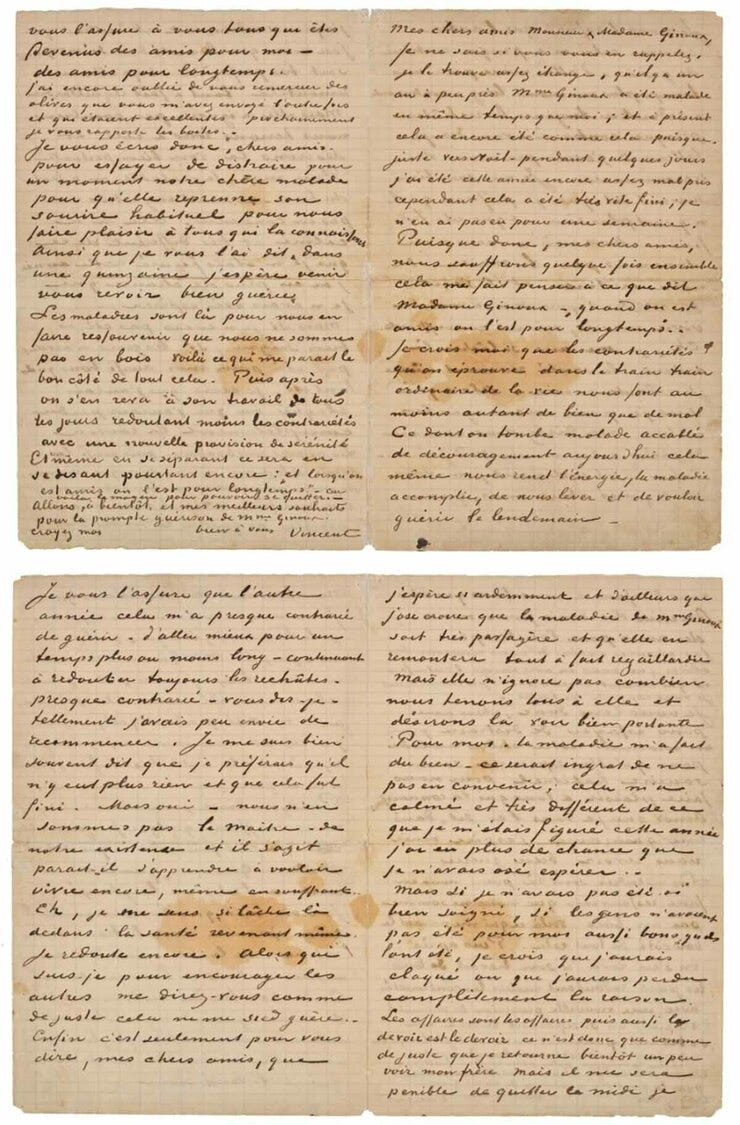 Mes chers amis Monsieur & Madame Ginoux,
Je ne sais si vous vous en rappelez.
je le trouve assez étrange, qu'il y a un
an à peu près Mme Ginoux a été malade
en même temps que moi; et à présent
cela a encore été comme cela puisque.
juste vers Noël - pendant quelques jours
j'ai été cette année encore assez mal pris
cependant cela a été très vite fini; je
n'en ai pas eu pour une semaine.
Puisque donc, mes chers amis,
nous souffrons quelque fois ensemble
cela me fait penser à ce que dit
Madame Ginoux -, quand on est
amis on l'est pour longtemps"..
Je crois moi que les contrariétés
qu'on éprouve dans le train train
ordinaire de la vie nous font au
moins autant de bien que de mal
Ce dont on tombe malade accablé
de découragement aujourd'hui cela
même nous rend l'énergie, la maladie
accomplie, de nous lever et de vouloir
guérir le lendemain -
Je vous l'assure que l'autre
année cela m'a presque contrarié
de guérir - d'aller mieux pour un
temps plus ou moins long - continuant
à redouter toujours les rechûtes -
presque contrarié - vous dis-je -
tellement j'avais peu envie de
recommencer. Je me suis bien
souvent dit que je préférais qu'il
n'y eut plus rien et que cela fut
fini. Mais oui - nous n'en
sommes pas le maître - de
notre existence et il s'agit
paraît-il d'apprendre à vouloir
vivre encore, même en souffrant.
Eh, je me sens si lâche là
dedans la santé revenant même.
Je redoute encore. Alors qui
suis-je pour encourager les
autres me direz-vous comme
de juste cela ne me sied guère..
Enfin c'est seulement pour vous
dire, mes chers amis, que
j'espère si ardemment et d'ailleurs que
j'ose croire que la maladie de Mme Ginoux
soit très passagère et qu'elle en
remontera tout à fait regaillardie
Mais elle n'ignore pas combien
nous tenons tous à elle et
désirons la voir bien portante
Pour moi - la maladie m'a fait
du bien - ce serait ingrat de ne
pas en convenir; cela m'a
calmé et très différent de ce
que je m'étais figuré cette année
j'ai eu plus de chance que
je n'avais osé espérer..
Mais si je n'avais pas été si
bien soigné, si les gens n'avaient
pas été pour moi aussi bons qu'ils
l'ont été, je crois que j'aurais
claqué ou que j'aurais perdu
complètement la raison.
Les affaires sont les affaires puis aussi le
devoir est le devoir ce n'est donc que comme
de juste que je retourne bientôt un peu
voir mon frère mais il me sera
pénible de quitter le midi je
vous l'assure à vous tous qui êtes
devenus des amis pour moi -
des amis pour longtemps.
J'ai encore oublié de vous remercier des
olives que vous m'avez envoyé l'autre fois
et qui étaient excellentes prochainement
je vous rapporte les boites..
Je vous écris donc, chers amis.
pour essayer de distraire pour
un moment notre chère malade
pour qu'elle reprenne son
sourire habituel pour nous
faire plaisir à tous qui la connaissons
Ainsi que je vous l'ai dit, dans
une quinzaine j'espère venir
vous revoir bien guéries
Les maladies sont là pour nous en
faire ressouvenir que nous ne sommes
pas en bois voilà ce qui me paraît le
bon côté de tout cela. Puis après
on s'en reva à son travail de tous
les jours redoutant moins les contrariétés
avec une nouvelle provision de sérénité
Et même en se séparant ce sera en
se disant pourtant encore: "et lorsqu'on
est amis on l'est pour longtemps" - car
voilà le moyen pour pouvoir se quitter -
Allons, à bientôt, et mes meilleurs souhaits
pour la prompte guérison de Mme Ginoux.
croyez moi bien à vous Vincent